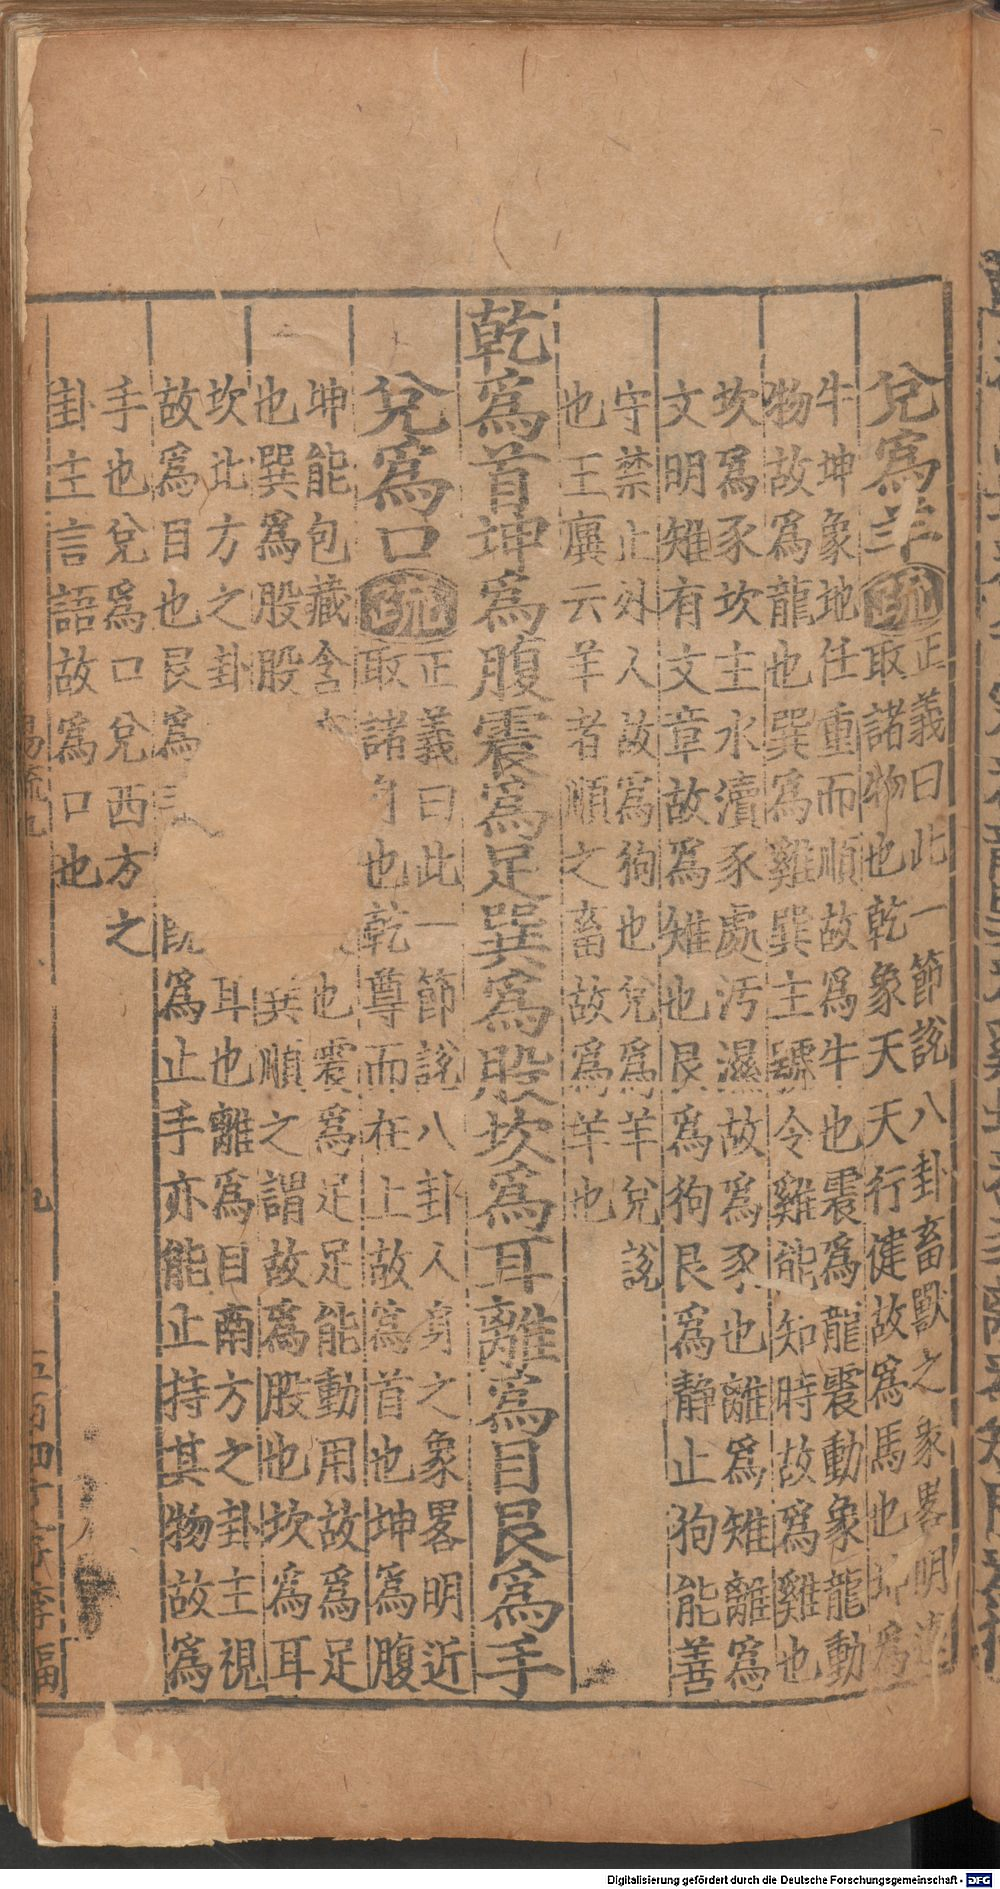 兌爲羊疏
正義曰此一節說八卦畜獸之象畧明遠
取諸物也乾象天天行健故爲馬也坤爲
牛坤象地任重而順故爲牛也震爲龍震動象龍動
物故爲龍也巽爲雞巽主號令雞能知時故爲雞也
坎爲豕坎主水瀆豕處汚濕故爲豕也離爲雉離爲
文明雉有文章故爲雉也艮爲狗艮爲静止狗能善
守禁止外人故爲狗也兌爲羊兌說
也王廙云羊者順之畜故爲羊也
乾爲首坤爲腹震爲足巽爲股坎爲耳離爲目艮爲手
兌爲口疏
正義曰此一節說八卦人身之象畧明近
取諸身也乾尊而在上故爲首也坤爲腹
坤能包藏含 也震爲足足能動用故爲足
也巽爲股股 巽順之謂故爲股也坎爲耳
坎北方之卦 耳也離爲目南方之卦主視
故爲目也艮爲 既爲止手亦能止持其物故爲
手也兌爲口兌西方之
卦主言語故爲口也
易疏九
九
Digitalisierung gefördert durch die Deutsche Forschungsgemeinschaft - DFG